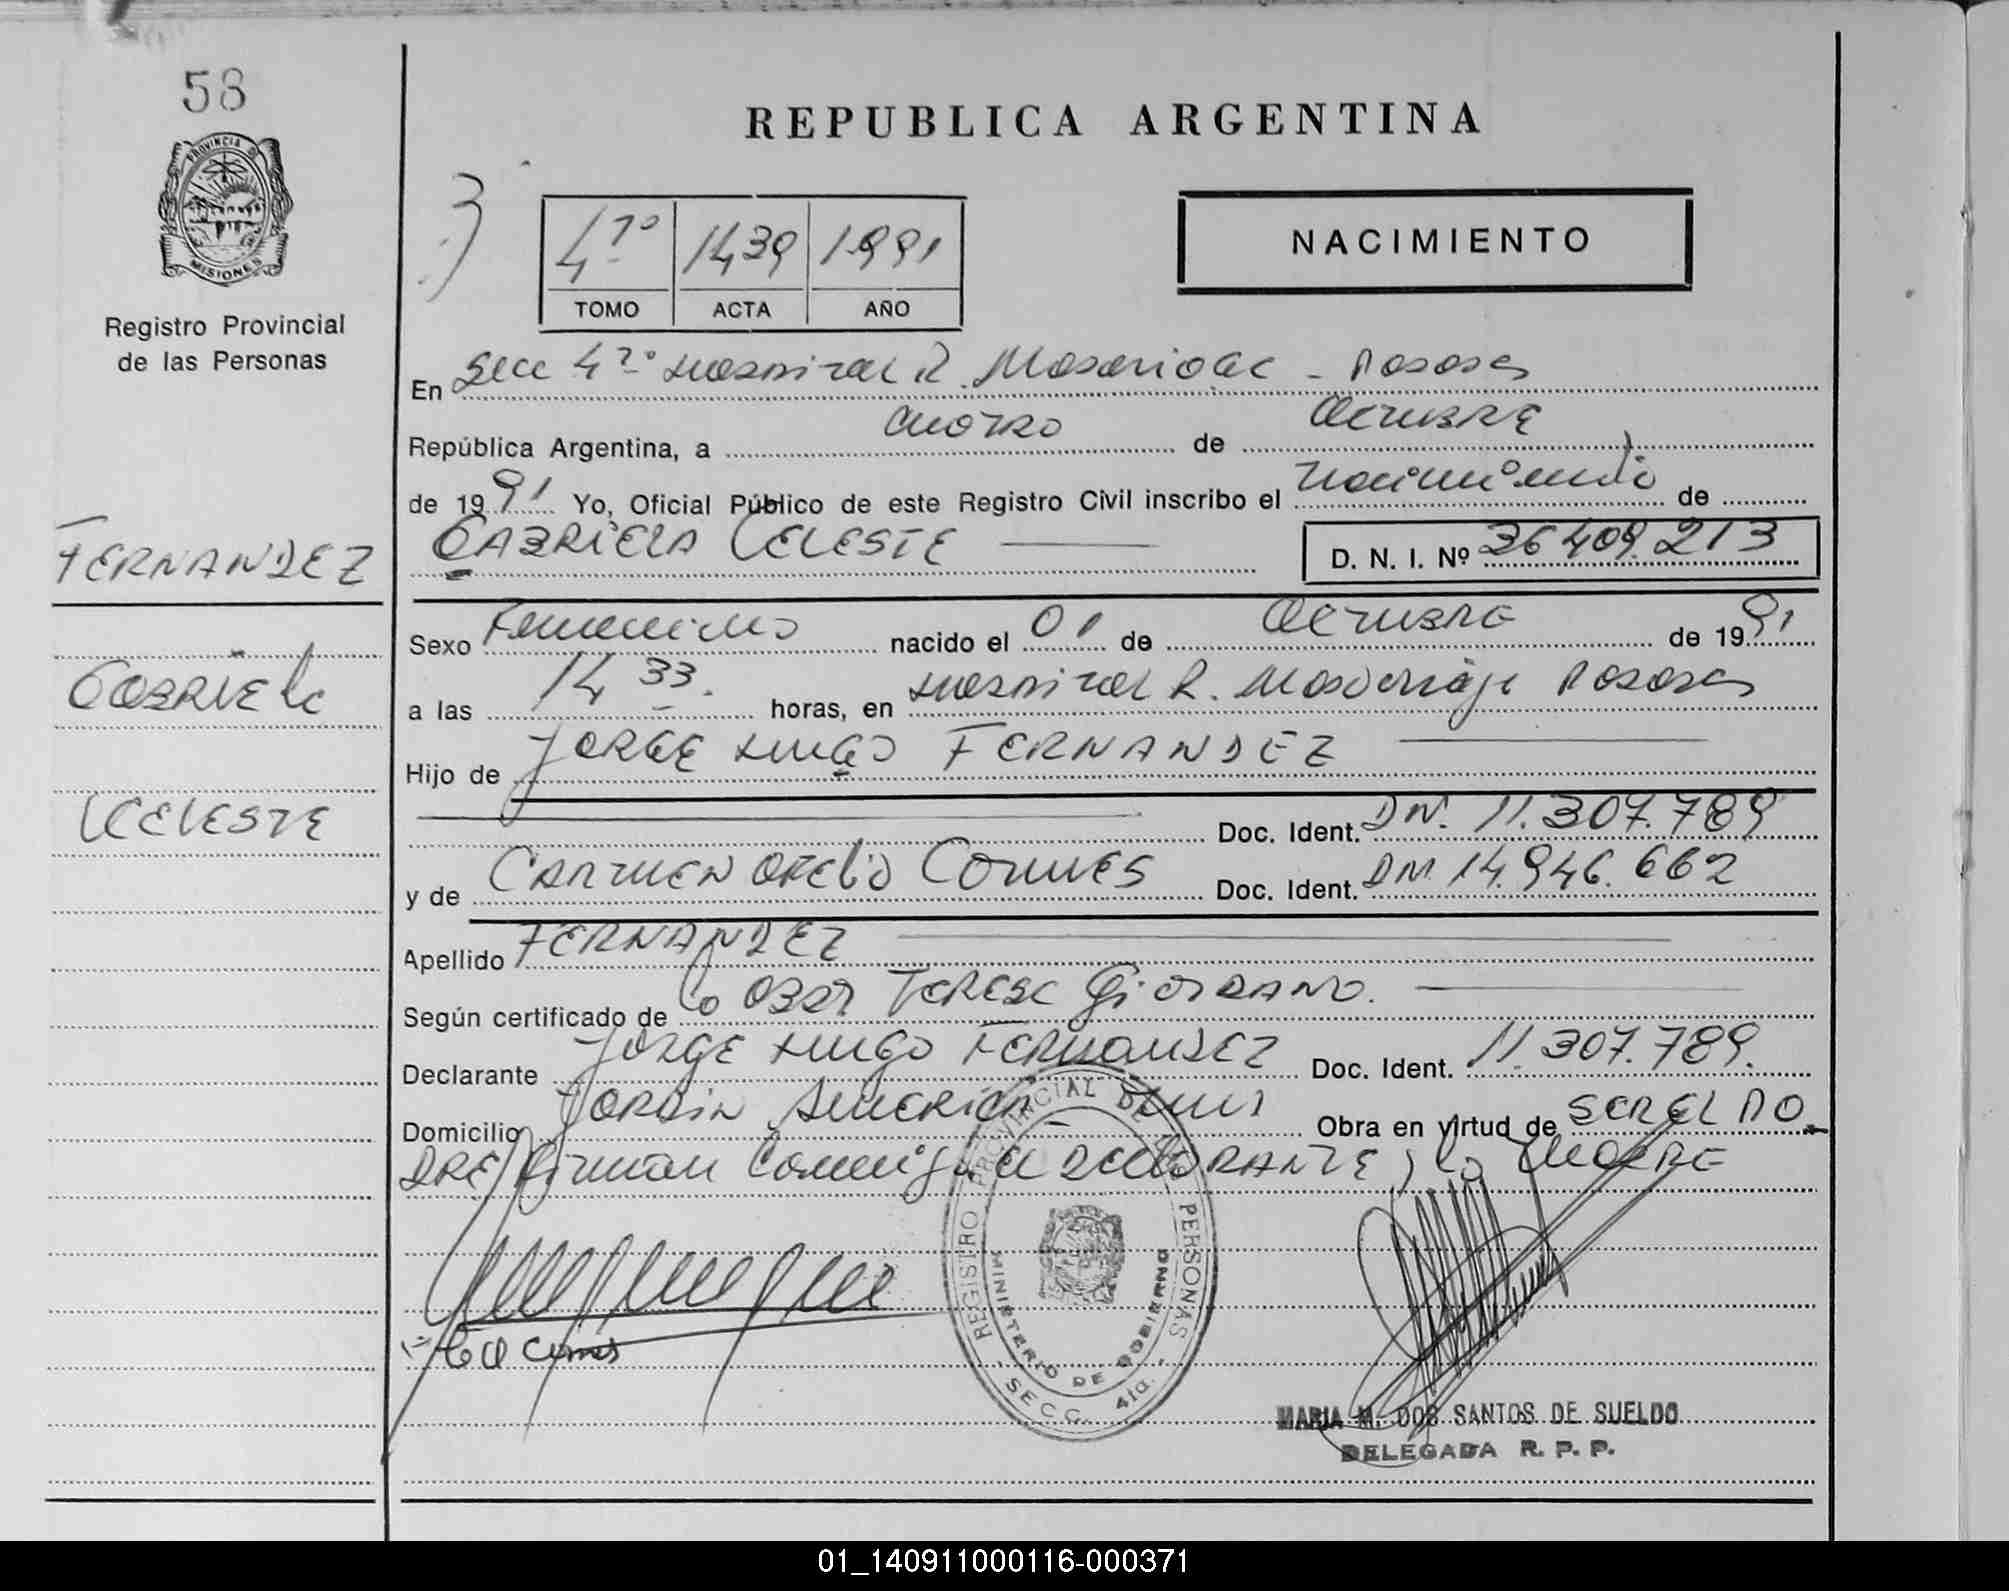 58
PROVINCIA DE
MISIONES
Registro Provincial
de las Personas
FERNANDEZ
Gabriela
CELESTE
REPUBLICA ARGENTINA
4ª 1439 1991
TOMO ACTA AÑO
NACIMIENTO
En Secc 4ª Hospital R. Madariaga - Posadas
República Argentina, a cuatro de Octubre
de 1991 Yo, Oficial Público de este Registro Civil inscribo el nacimiento de
GABRIELA CELESTE D. N. I. Nº 36409.213
Sexo Femenino nacido el 01 de Octubre de 1991
a las 14 33. horas, en Hospital R. Madariaga Posadas
Hijo de JORGE HUGO FERNANDEZ
Doc. Ident. DN. 11.307.789
y de CARMEN Doc. Ident. DN. 14.946.662
Apellido FERNANDEZ
Según certificado de la Obst TERESA GIORDANO.
Declarante JORGE HUGO FERNANDEZ Doc. Ident. 11.307.789.
Domicilio Jardin AMERICA Mnes Obra en virtud de SER EL PA
DRE/ firman conmigo el DECLARANTE y la MADRE
REGISTRO PROVINCIAL DE LAS PERSONAS
MINISTERIO DE GOBIERNO
SECC. 4ta.
MARIA M. DOS SANTOS DE SUELDO
DELEGADA R. P. P.
01_140911000116-000371